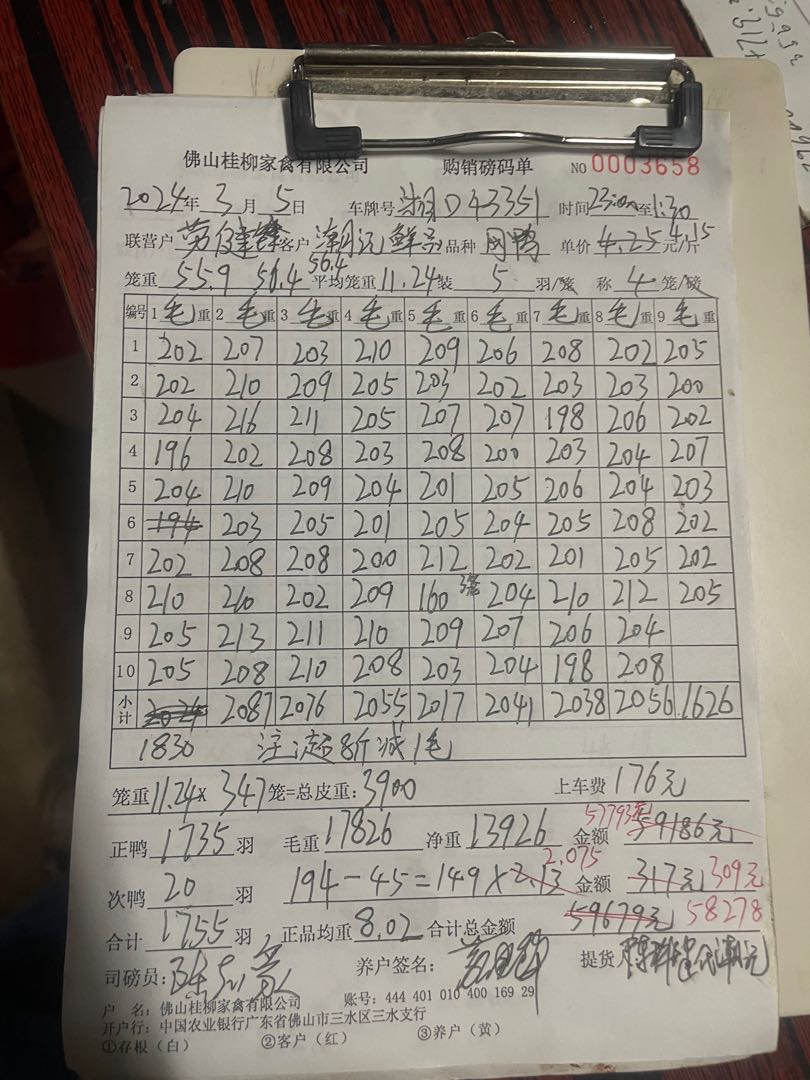 佛山桂柳家禽有限公司 购销磅码单 NO 0003658
2024年 3月 5日 车牌号 湘D43351 时间 23:00至1:30
联营户 劳健锋 客户 潮记鲜 品种 国鸭 单价 4.25 4.15 元/斤
笼重 55.9 56.4 56.4 平均笼重 11.24 装 5 羽/笼 称 4 笼/磅
编号 1 毛重 2 毛重 3 毛重 4 毛重 5 毛重 6 毛重 7 毛重 8 毛重 9 毛重
1 202 207 203 210 209 206 208 202 205
2 202 210 209 205 203 202 203 203 200
3 204 216 211 205 207 207 198 206 202
4 196 202 208 203 208 200 203 204 207
5 204 210 209 204 201 205 206 204 203
6 194 203 205 201 205 204 205 208 202
7 202 208 208 200 212 202 201 205 202
8 210 210 202 209 160 3笼 204 210 212 205
9 205 213 211 210 209 207 206 204
10 205 208 210 208 203 204 198 208
小计 2024 2087 2076 2055 2017 2041 2038 2056 1626
1830 注:超8斤减1毛
笼重 11.24× 347 笼=总皮重: 3900 上车费 176元
正鸭 1735 羽 毛重 17826 净重 13926 金额 59186元 57793元
次鸭 20 羽 194-45=149×2.13 2.075 金额 317元 309元
合计 1755 羽 正品均重 8.02 合计总金额 59679元 58278
司磅员: 养户签名: 提货
户 名: 佛山桂柳家禽有限公司 账号: 444 401 010 400 169 29
开户行: 中国农业银行广东省佛山市三水区三水支行
①存根（白） ②客户（红） ③养户（黄）